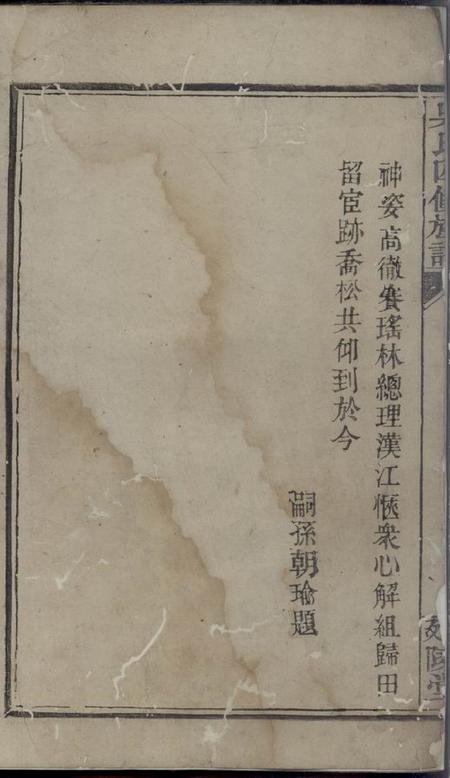 神姿高徹賽瑤林總理漢江愜衆心解組歸田
留宦跡喬松共仰到於今
嗣孫朝瑜題